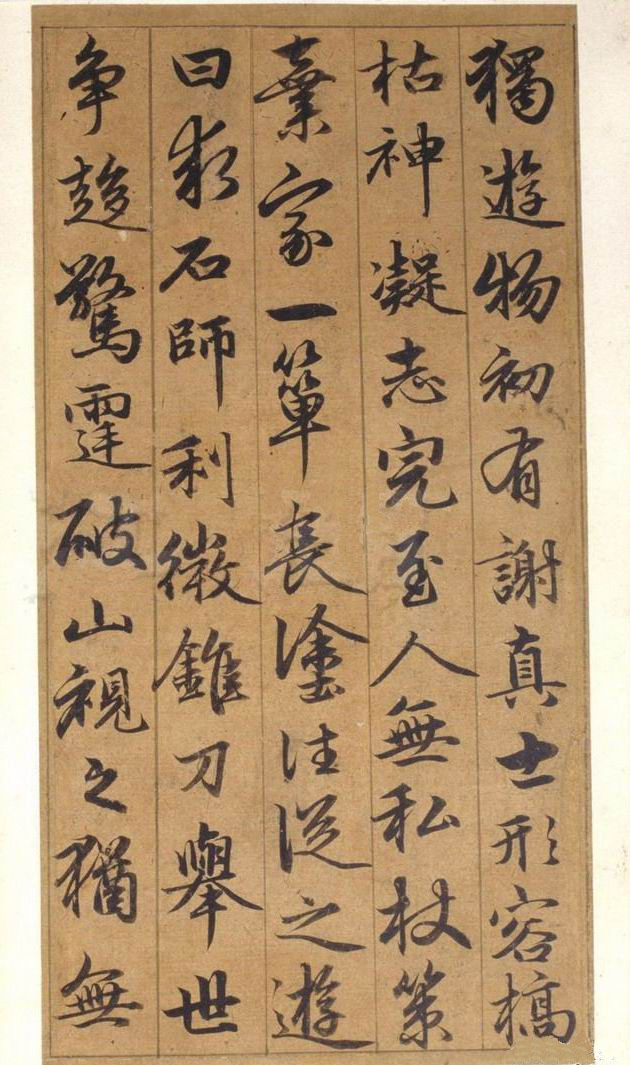 獨遊物初有謝真士形容槁
枯神凝志完至人無私杖策
棄家一簞長塗往從之遊
曰求石師利微錐刀舉世
争趍驚霆破山視之猶無